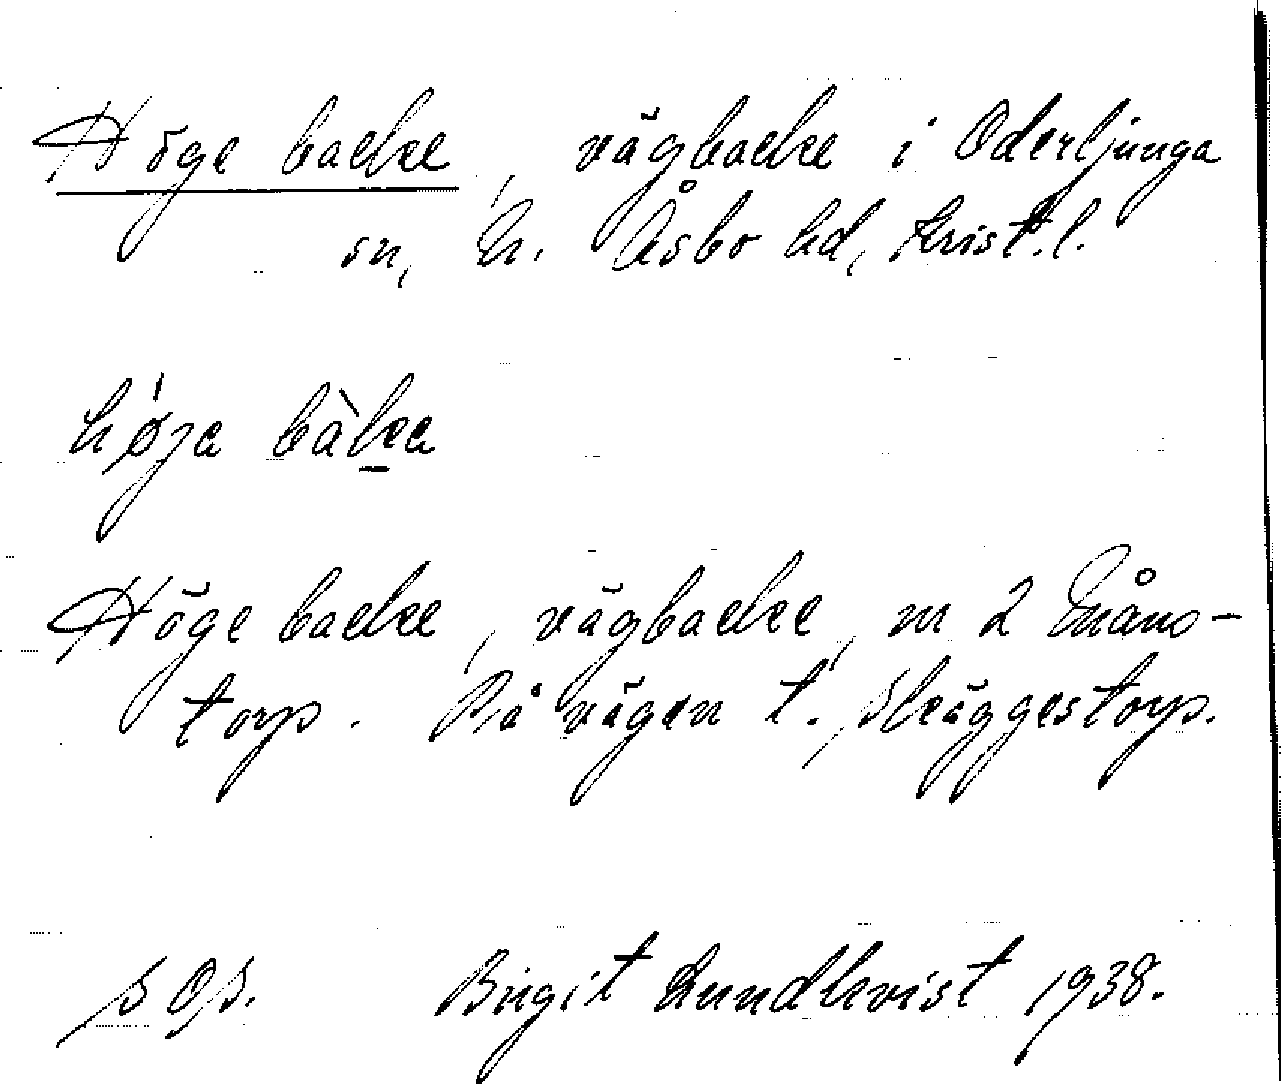 Höge backe, vägbacke i Oderljunga
sn, N. Åsbo hd, Krist. l.
høja bàka
Höge backe, vägbacke, m 2 Måns-
torp. På vägen t. Skäggestorp.
SOS. Birgit Lundkvist 1938.